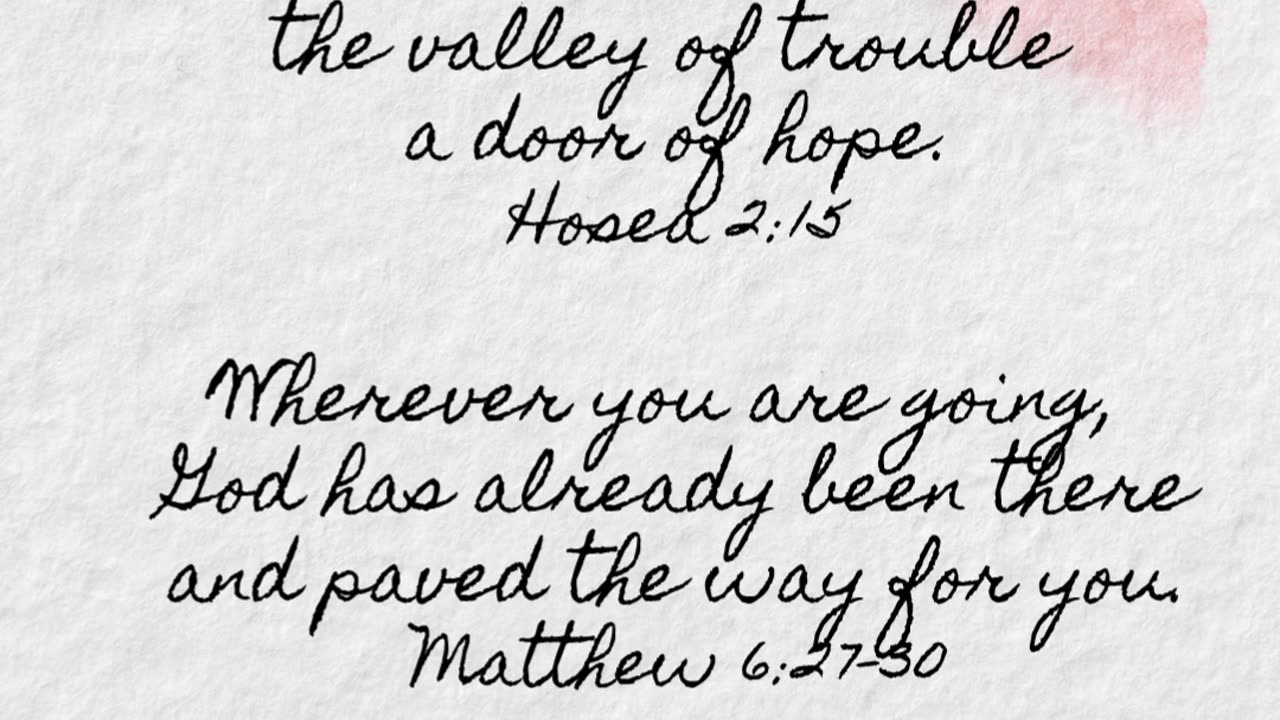 the valley of trouble
a door of hope.
Hosea 2:15
Wherever you are going,
God has already been there
and paved the way for you.
Matthew 6:27-30